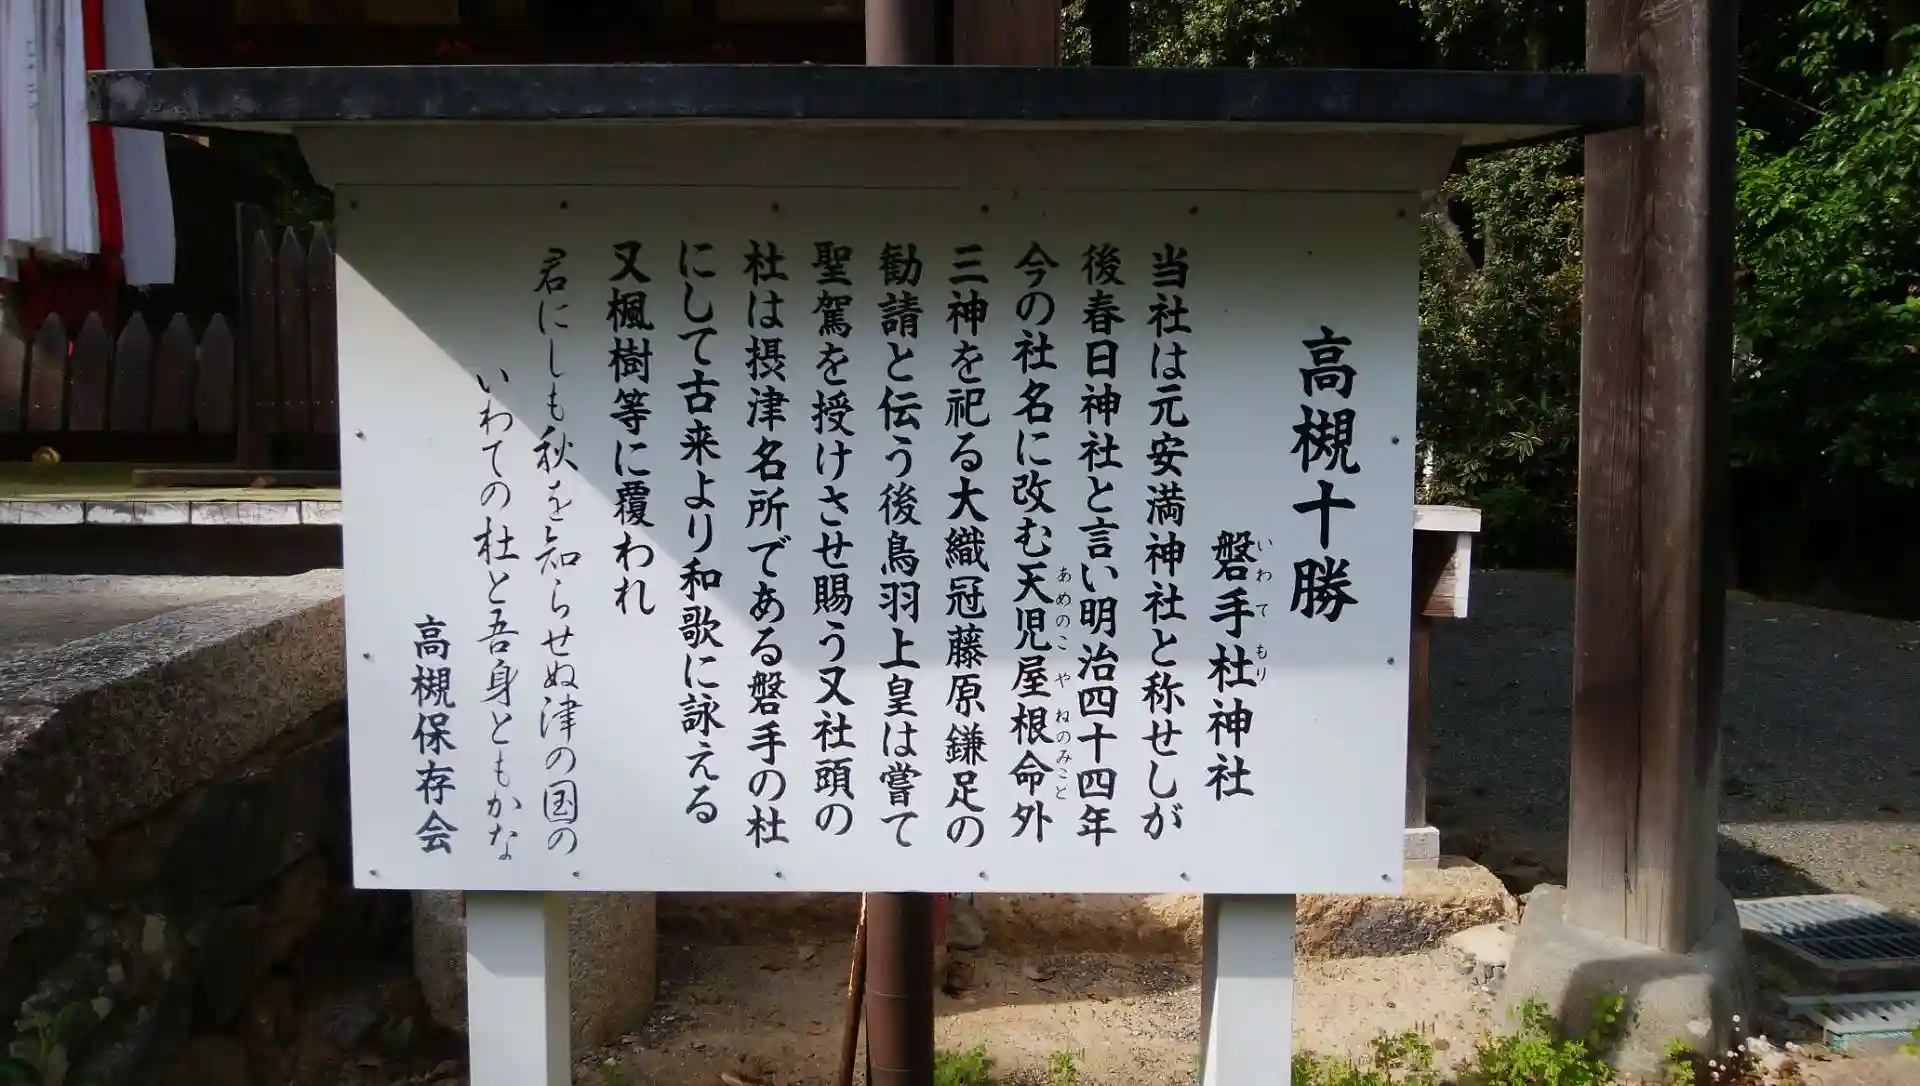 高槻十勝
磐手杜神社
いわてもり
当社は元安満神社と称せしが
後春日神社と言い明治四十四年
今の社名に改む天児屋根命外
あめのこやねのみこと
三神を祀る大織冠藤原鎌足の
勧請と伝う後鳥羽上皇は嘗て
聖駕を授けさせ賜う又社頭の
杜は摂津名所である磐手の杜
にして古来より和歌に詠える
又楓樹等に覆われ
君にしも秋を知らせぬ津の国の
いわての杜と吾身ともかな
高槻保存会